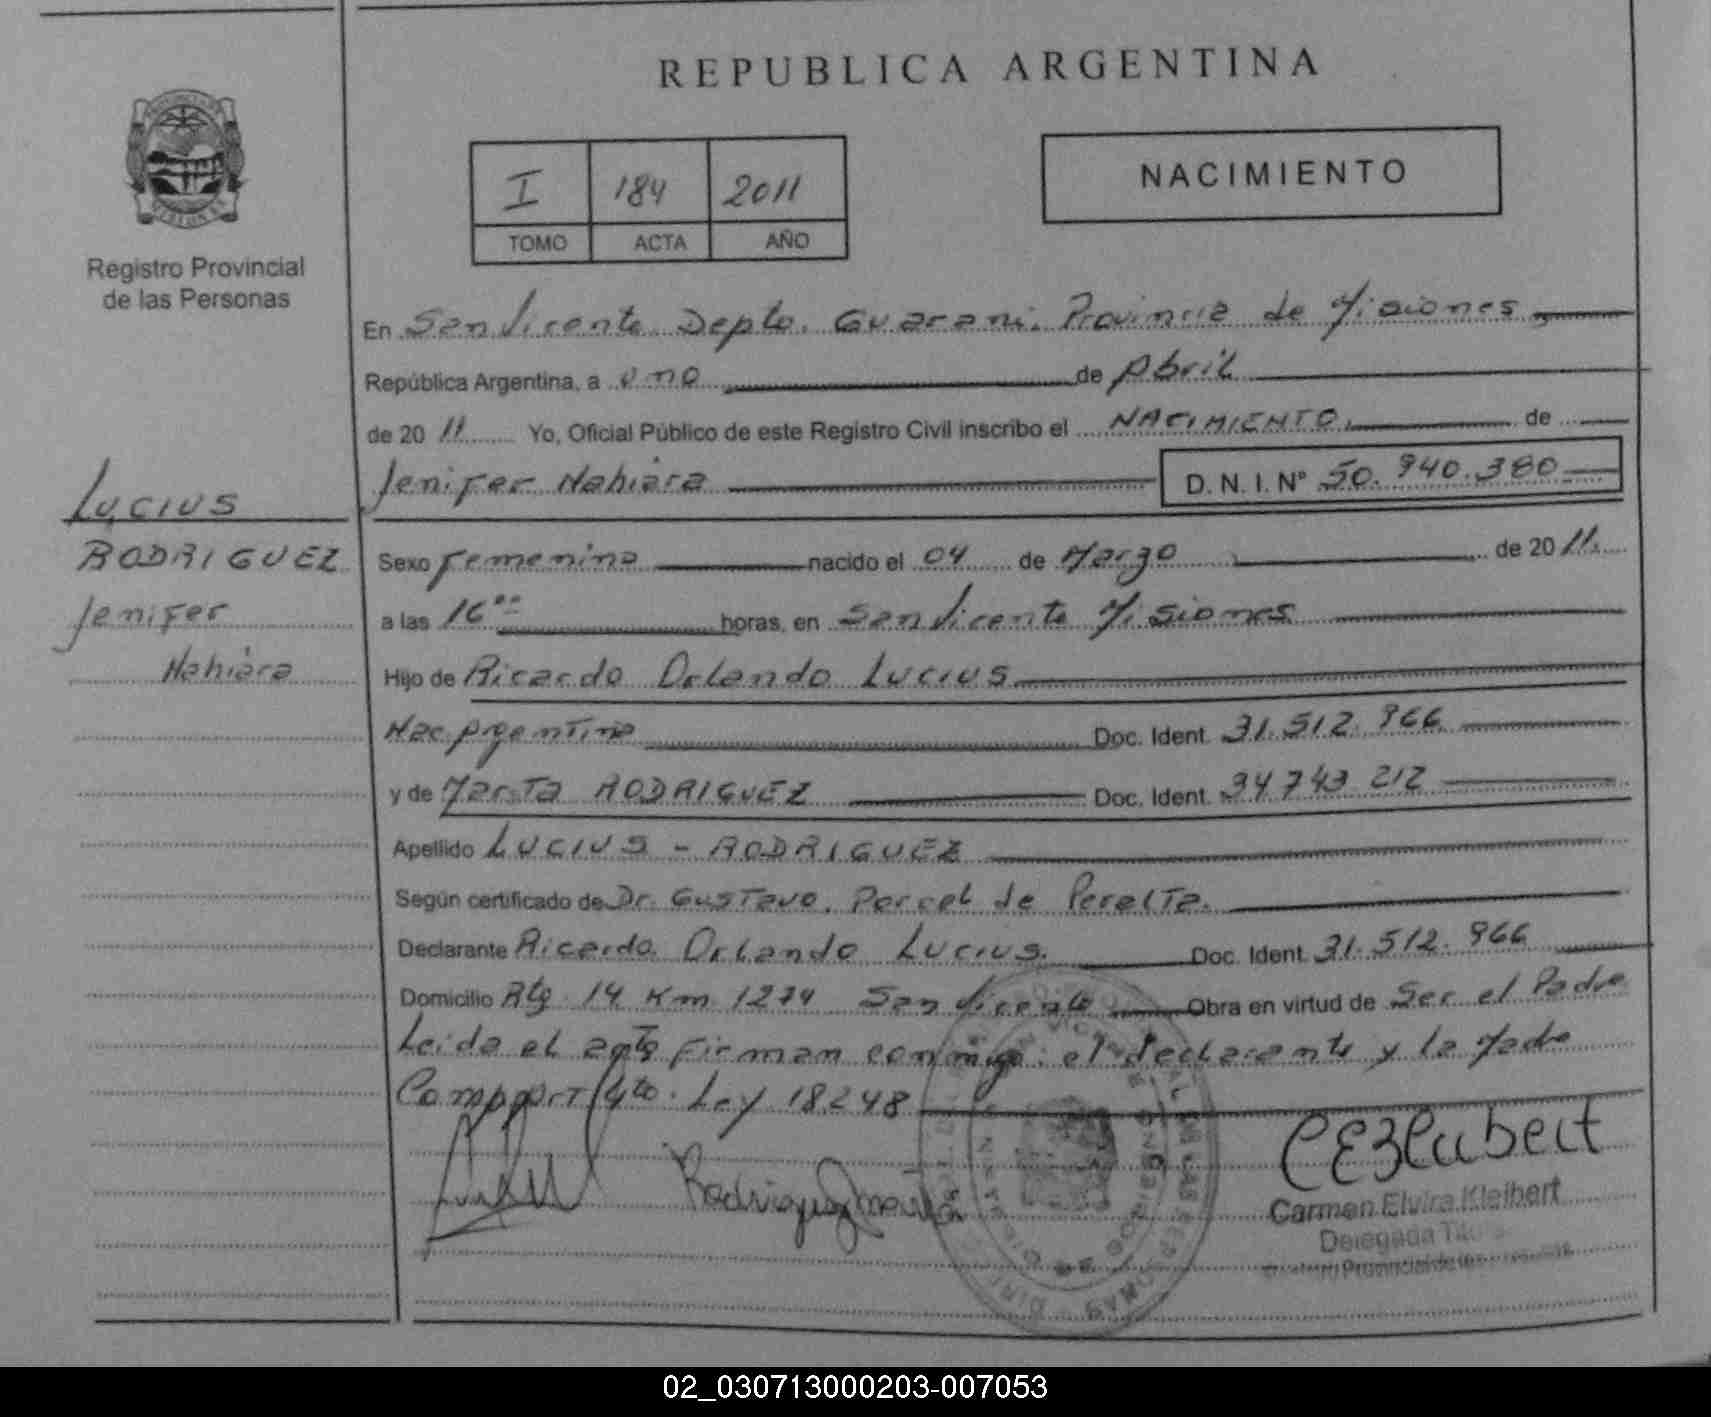 REPUBLICA ARGENTINA
I 184 2011
TOMO ACTA AÑO
NACIMIENTO
Registro Provincial
de las Personas
LUCIUS
RODRIGUEZ
Jenifer
Nahiara
En San Vicente Depto. Guarani. Provincia de Misiones
República Argentina, a uno de Abril
de 2011 Yo, Oficial Público de este Registro Civil inscribo el NACIMIENTO de
Jenifer Nahiara D. N. I. Nº 50.940.380
Sexo Femenino nacido el 04 de Marzo de 2011.
a las 16 horas, en San Vicente Misiones
Hijo de Ricardo Orlando Lucius
Nac. Argentina Doc. Ident. 31.512.966
y de Marta RODRIGUEZ Doc. Ident. 34743.212
Apellido LUCIUS - RODRIGUEZ
Según certificado de Dr. Gustavo. Porcel de Peralta.
Declarante Ricardo Orlando Lucius. Doc. Ident. 31.512.966
Domicilio Rta 14 Km 1274 San Vicente Obra en virtud de Ser el Padre
Leida el acta firman conmigo: el declarante y la Madre
Ley 18248
Rodriguez Marta
Carmen Elvira Kleibert
Delegada
Provincial de las
02_030713000203-007053